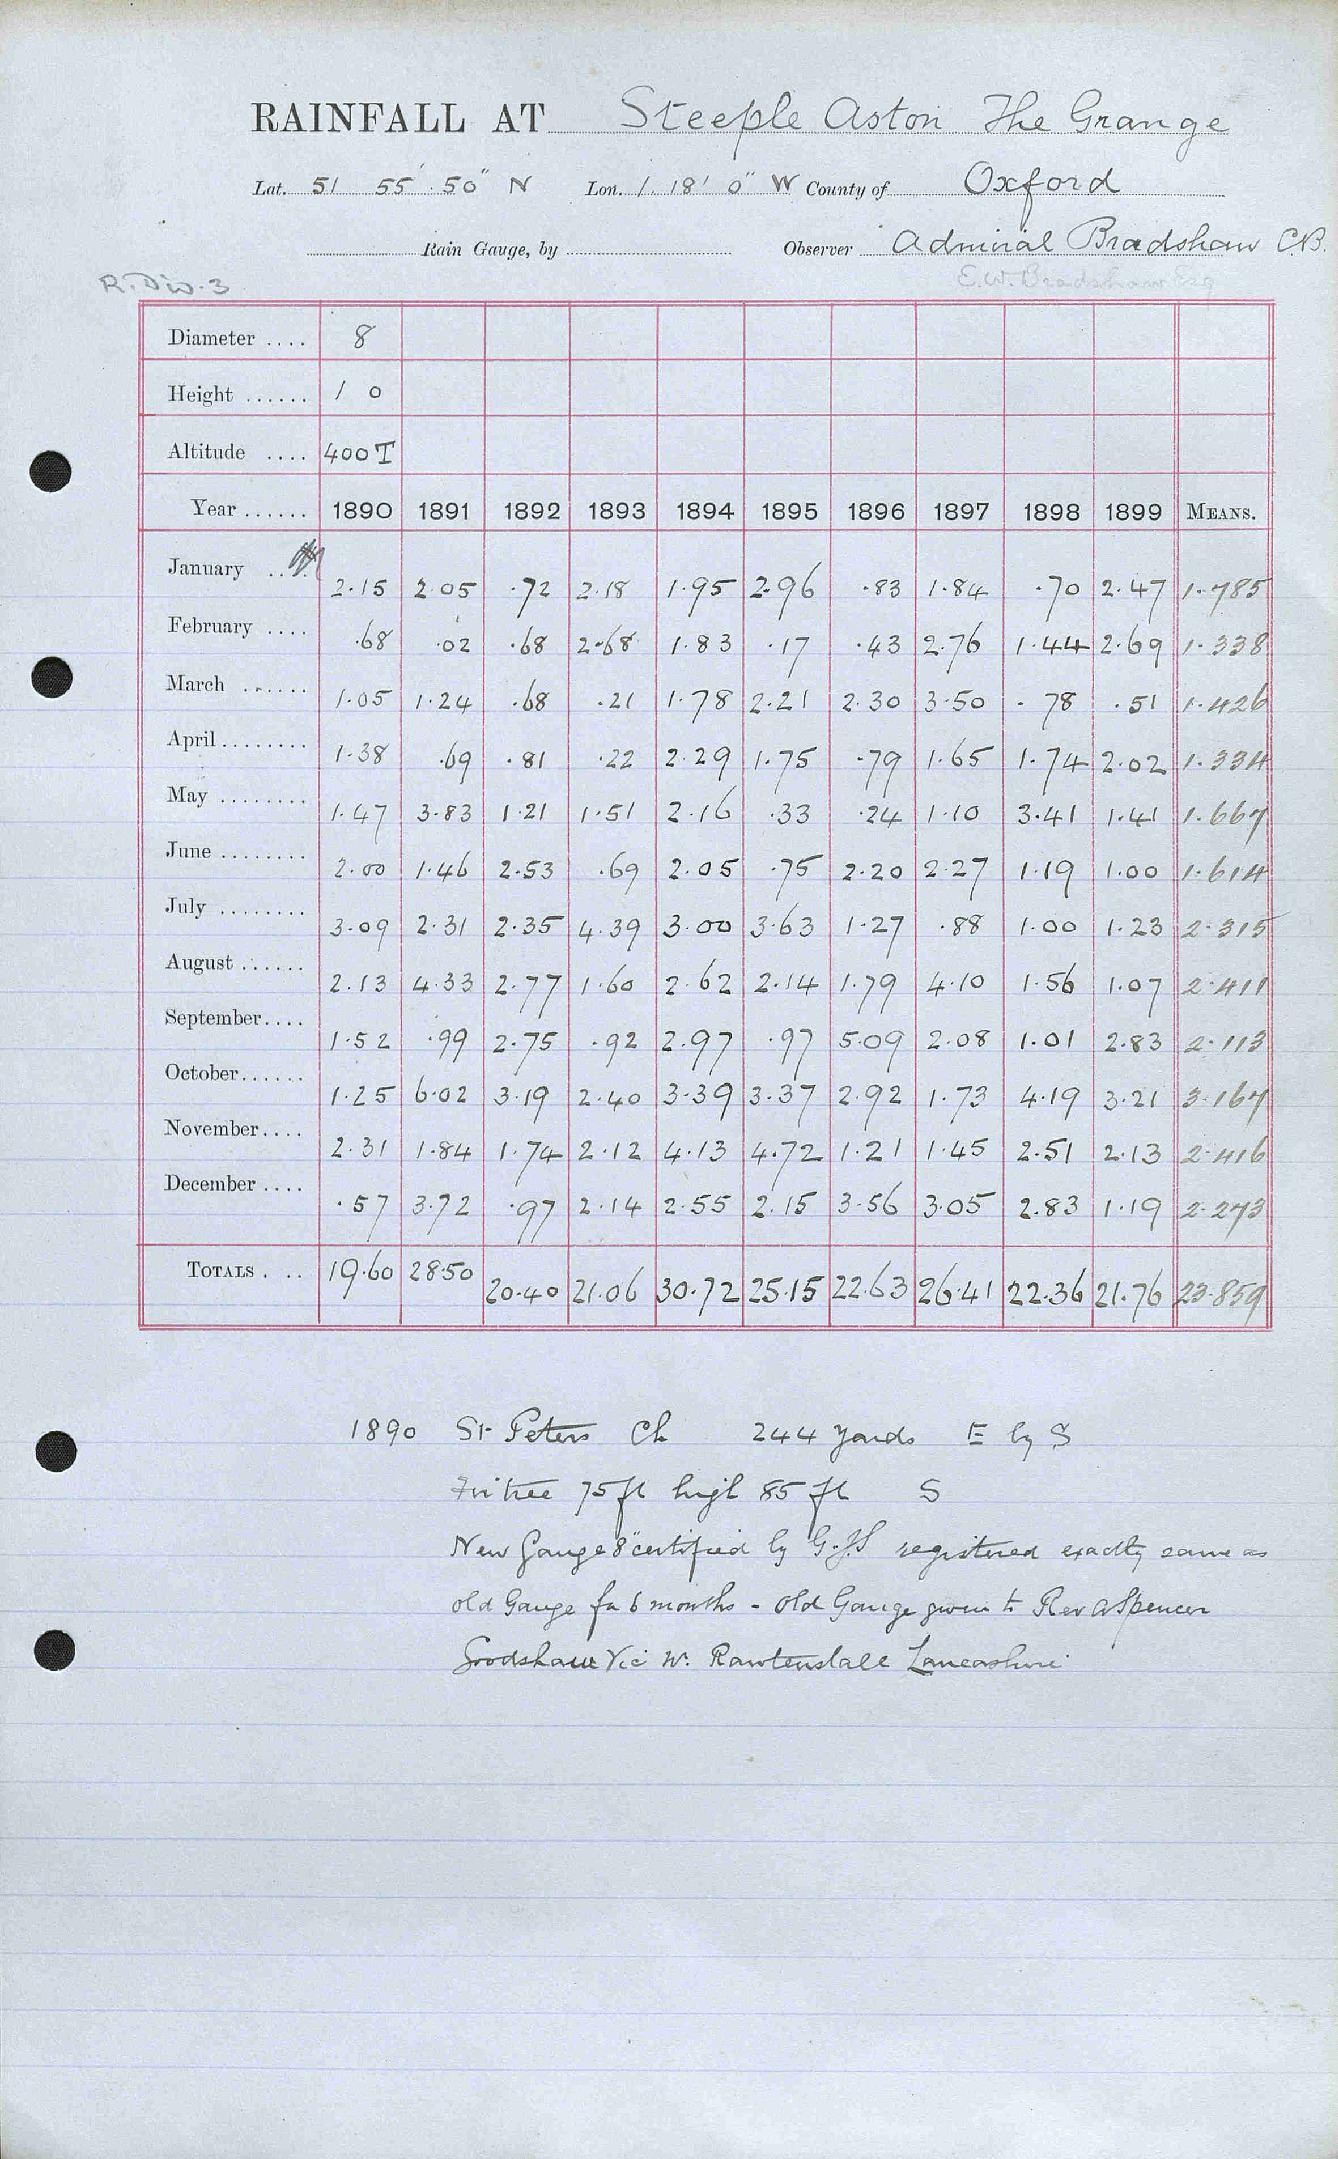 RAINFALL AT Steeple Aston The Grange
Lat. 51 55' 50" N Lon. 1. 18' 0" W County of Oxford
Rain Gauge, by Observer Admiral Bradshaw C.B.
R. Div. 3 E.W. Bradshaw Esq
Diameter .... 8
Height ...... 1 0
Altitude .... 400 T
Year ...... 1890 1891 1892 1893 1894 1895 1896 1897 1898 1899 MEANS.
January .... 2.15 2.05 .72 2.18 1.95 2.96 .83 1.84 .70 2.47 1.785
February .... .68 .02 .68 2.68 1.83 .17 .43 2.76 1.44 2.69 1.338
March ...... 1.05 1.24 .68 .21 1.78 2.21 2.30 3.50 .78 .51 1.426
April ........ 1.38 .69 .81 .22 2.29 1.75 .79 1.65 1.74 2.02 1.334
May ........ 1.47 3.83 1.21 1.51 2.16 .33 .24 1.10 3.41 1.41 1.667
June ........ 2.00 1.46 2.53 .69 2.05 .75 2.20 2.27 1.19 1.00 1.614
July ........ 3.09 2.31 2.35 4.39 3.00 3.63 1.27 .88 1.00 1.23 2.315
August ...... 2.13 4.33 2.77 1.60 2.62 2.14 1.79 4.10 1.56 1.07 2.411
September.... 1.52 .99 2.75 .92 2.97 .97 5.09 2.08 1.01 2.83 2.113
October...... 1.25 6.02 3.19 2.40 3.39 3.37 2.92 1.73 4.19 3.21 3.167
November.... 2.31 1.84 1.74 2.12 4.13 4.72 1.21 1.45 2.51 2.13 2.416
December .... .57 3.72 .97 2.14 2.55 2.15 3.56 3.05 2.83 1.19 2.273
TOTALS . .. 19.60 28.50 20.40 21.06 30.72 25.15 22.63 26.41 22.36 21.76 23.859
1890 St Peters Ch 244 yards E by S
Fir tree 75 ft high 85 ft S
New Gauge 8" certified by G.J.S registered exactly same as
old Gauge for 6 months - Old Gauge given to Rev A Spencer
Goodshaw Vic Nr. Rawtenstall Lancashire